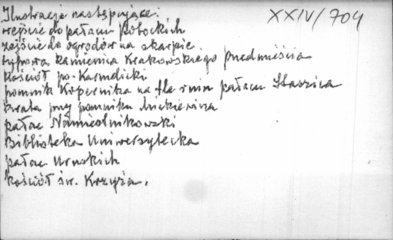 Ilustracje następujące: XXIV/704
wejście do pałacu Potockich
zejście do ogrodów na skarpie
typowa kamienica Krakowskiego przedmieścia
kościół po-Karmelicki
pomnik Kopernika na tle pałacu Staszica
krata przy pomniku Mickiewicza
pałac Namiestnikowski
Biblioteka Uniwersytecka
pałac Uruskich
kościół św. Krzyża.